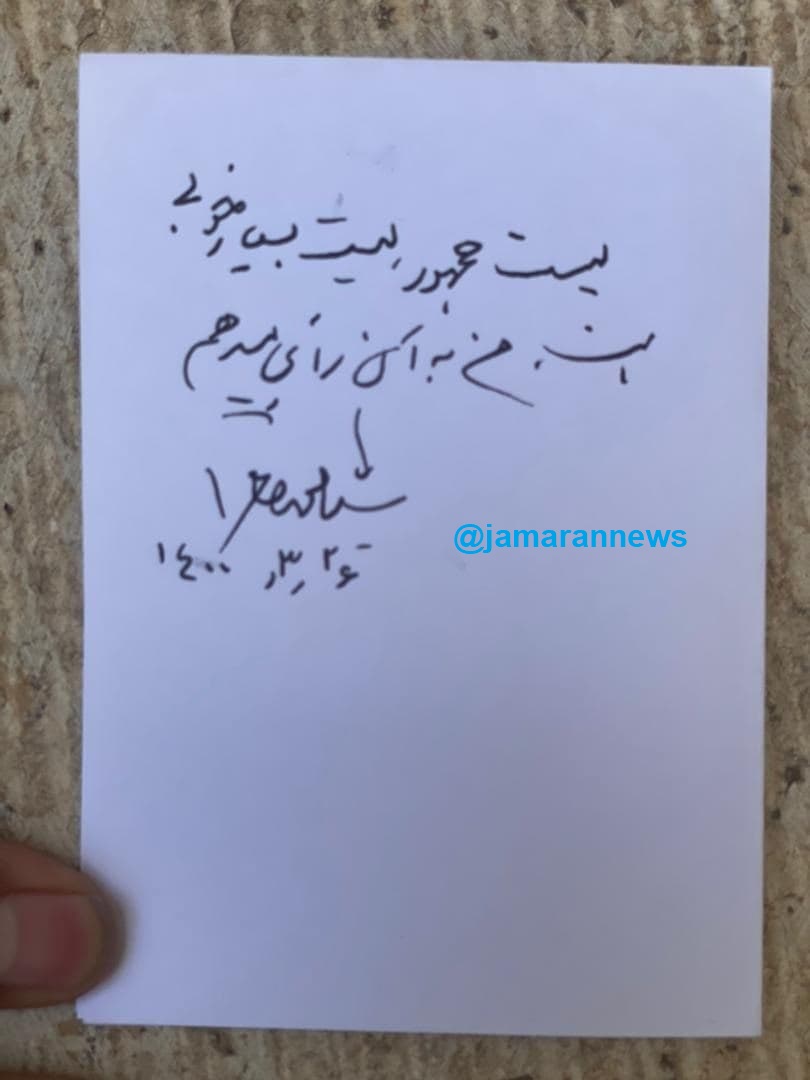 لیست جمهور، لیست بسیار خوبی
است. من به آن رأی میدهم
۱۴۰۰ ,۳, ۲۶
@jamarannews